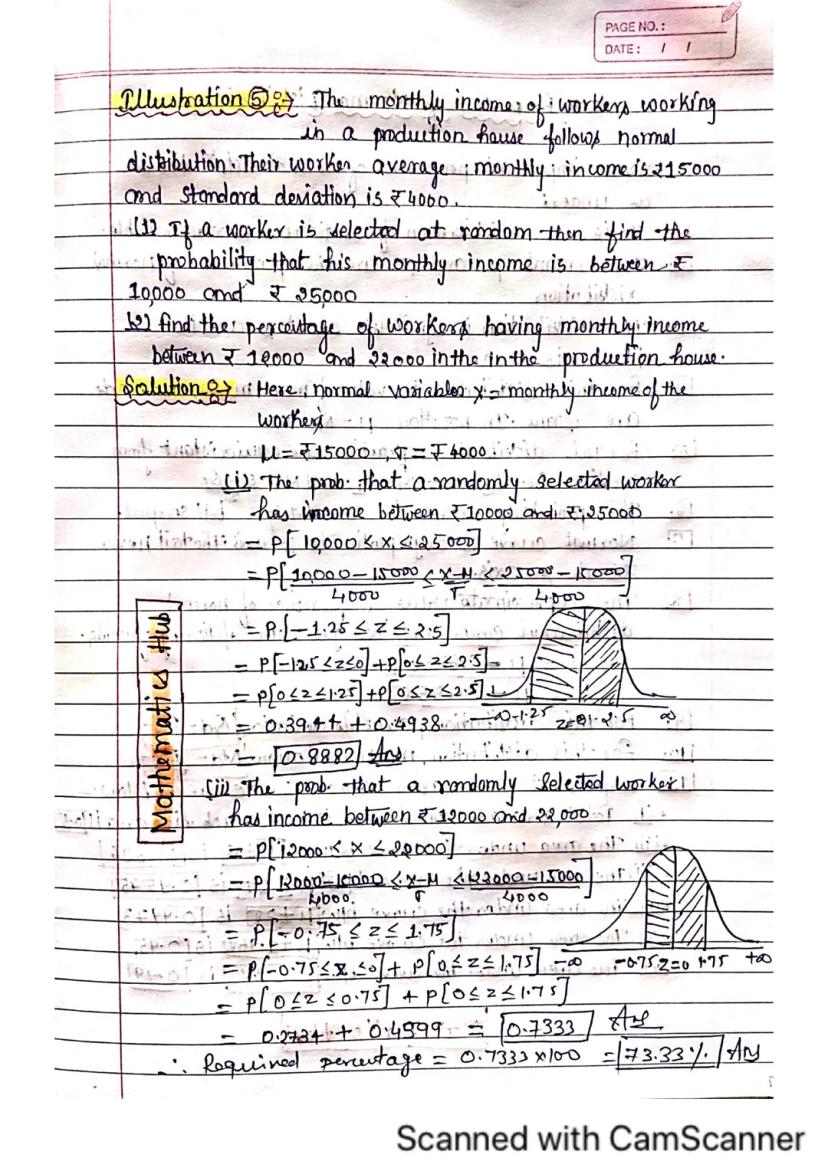 PAGE NO.:
DATE: / /
Illustration ⑤ :→ The monthly income of workers working
in a production house follows normal
distribution. Their worker average monthly income is ₹15000
and standard deviation is ₹4000.
(1) If a worker is selected at random then find the
probability that his monthly income is between ₹
10,000 and ₹ 25,000
(2) find the percentage of workers having monthly income
between ₹ 12000 and 22000 in the in the production house.
Solution :→ Here, normal variables X = monthly income of the
workers
μ = ₹15000, σ = ₹4000.
(i) The prob. that a randomly selected worker
has income between ₹10000 and ₹25000
= P[10,000 ≤ x ≤ 25000]
= P[10,000-15000/4000 ≤ x-μ/σ ≤ 25000-15000/4000]
= P[-1.25 ≤ z ≤ 2.5]
= P[-1.25 ≤ z ≤ 0] + P[0 ≤ z ≤ 2.5]
= P[0 ≤ z ≤ 1.25] + P[0 ≤ z ≤ 2.5]
= 0.3944 + 0.4938
-∞ -1.25 z=0 2.5 ∞
= 0.8882 Ans
Mathematics Hub
(ii) The prob. that a randomly selected worker
has income between ₹12000 and 22,000
= P[12000 ≤ x ≤ 22000]
= P[12000-15000/4000 ≤ x-μ/σ ≤ 22000-15000/4000]
= P[-0.75 ≤ z ≤ 1.75]
= P[-0.75 ≤ z ≤ 0] + P[0 ≤ z ≤ 1.75]
-∞ -0.75 z=0 1.75 +∞
= P[0 ≤ z ≤ 0.75] + P[0 ≤ z ≤ 1.75]
= 0.2734 + 0.4599 = 0.7333 Ans
∴ Required percentage = 0.7333 x100 = 73.33% Ans
Scanned with CamScanner